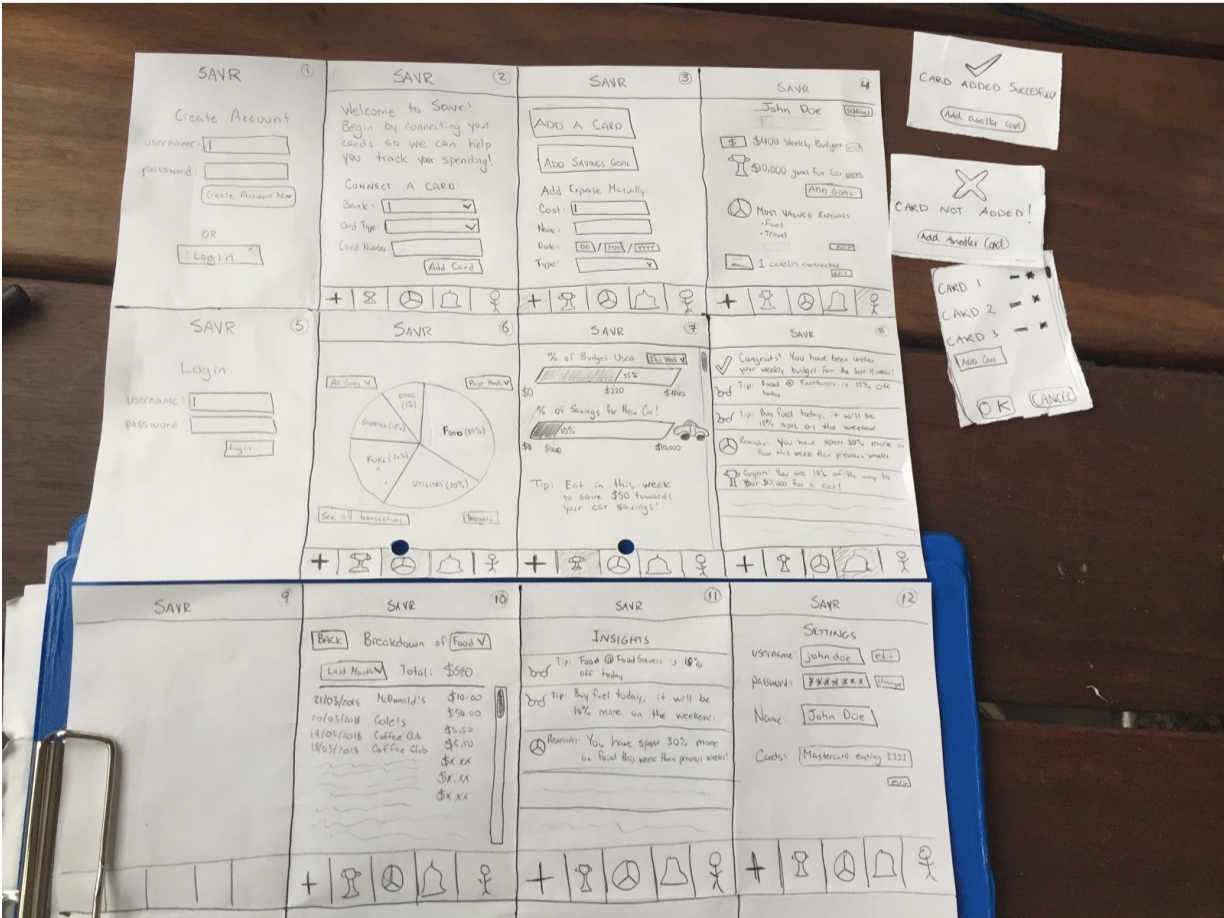 SAVR
1
Create Account
username:
password:
Create Account Now
OR
Login
SAVR
2
Welcome to Savr!
Begin by connecting your
cards so we can help
you track your spending!
CONNECT A CARD:
Bank:
Card Type:
Card Number
Add Card
SAVR
3
ADD A CARD
ADD SAVINGS GOAL
Add Expense Manually:
Cost:
Name:
Date: DD / MM / YYYY
Type:
SAVR
4
John Doe
settings
$ $400 Weekly Budget edit
$10,000 goal for Car
ADD GOAL
MOST VALUED EXPENSES
- Fuel
- Travel
1 card/s connected
CARD ADDED SUCCESFULLY
Add another card
CARD NOT ADDED!
Add Another Card
CARD 1
CARD 2
CARD 3
ADD CARD
OK
CANCEL
SAVR
5
Login:
username:
password
Login
SAVR
6
Past Month
FOOD (35%)
FUEL (20%)
UTILITIES (30%)
See all transactions
Insights
SAVR
7
% of Budget Used
This Week
55%
$0
$220
$400
% of Savings for New Car!
10%
$0
$1000
$10,000
Tip: Eat in this week
to save $50 towards
your car savings!
SAVR
8
Congrats! You have been under
your weekly budget for the last 4 weeks!
Tip: Food @ FoodSavers is 15% off
today.
Tip: Buy fuel today, it will be
10% more on the weekend
Reminder: You have spent 30% more on
food this week than previous weeks
Congrats! You are 10% of the way to
your $10,000 for a car!
SAVR
9
SAVR
10
BACK
Breakdown of Food
Last Month
Total: $580
21/03/2018 McDonald's $10.00
20/03/2018 Cole's $50.00
19/03/2018 Coffee Club $5.50
18/03/2018 Coffee Club $5.50
$x.xx
$x.xx
$x.xx
SAVR
11
INSIGHTS
Tip: Food @ FoodSavers is 15%
off today
Tip: Buy fuel today, it will be
10% more on the weekend.
Reminder: You have spent 30% more
on food this week than previous weeks!
SAVR
12
SETTINGS
username: john doe edit
password: ******* change
Name: John Doe
Cards: Mastercard ending 2222
edit